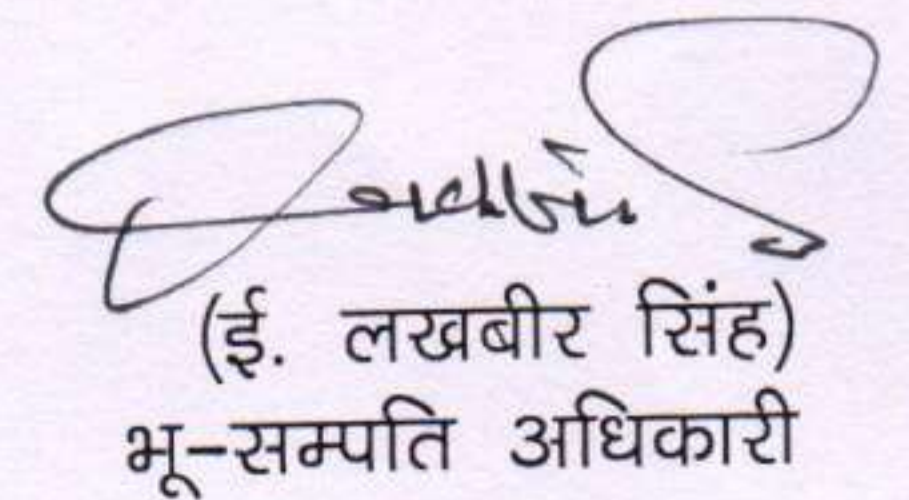 (ई. लखबीर सिंह)
भू-सम्पति अधिकारी